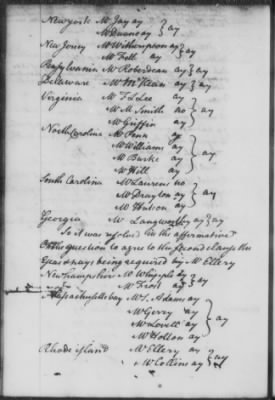 New york Mr Jay ay } ay
Mr Duane ay
New Jersey Mr Witherspoon ay } ay
Mr Fell ay
Pensylvania Mr Roberdeau ay } ay
Delaware Mr McKean ay } ay
Virginia Mr F L Lee ay
Mr M Smith no } ay
Mr Griffin ay
North Carolina Mr Penn ay
Mr Williams ay } ay
Mr Burke ay
Mr Hill ay
South Carolina Mr Laurens no
Mr Drayton ay } ay
Mr Hutson ay
Georgia Mr Langworthy ay } ay
So it was resolved in the affirmative
On the question to agree to the second clause the
yeas & nays being required by Mr Ellery
New hampshire Mr Whipple ay } ay
Mr Frost ay
Massachusetts bay Mr S. Adams ay
Mr Gerry ay } ay
Mr Lovell ay
Mr Holten ay
Rhode island Mr Ellery ay } ay
Mr Collins ay